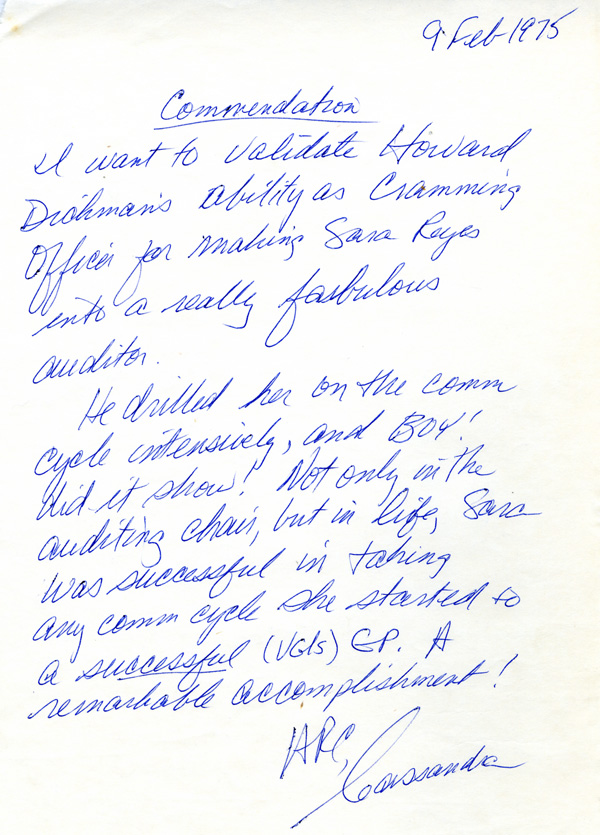 9 Feb 1975
Commendation
I want to validate Howard
Drohman's ability as Cramming
Officer for making Sara Reyes
into a really fasbulous
auditor.
He drilled her on the comm
cycle intensively, and BOY!
did it show! Not only in the
auditing chair, but in life, Sara
was successful in taking
any comm cycle she started to
a successful (VGIs) EP. A
remarkable accomplishment!
ARC,
Cassandra